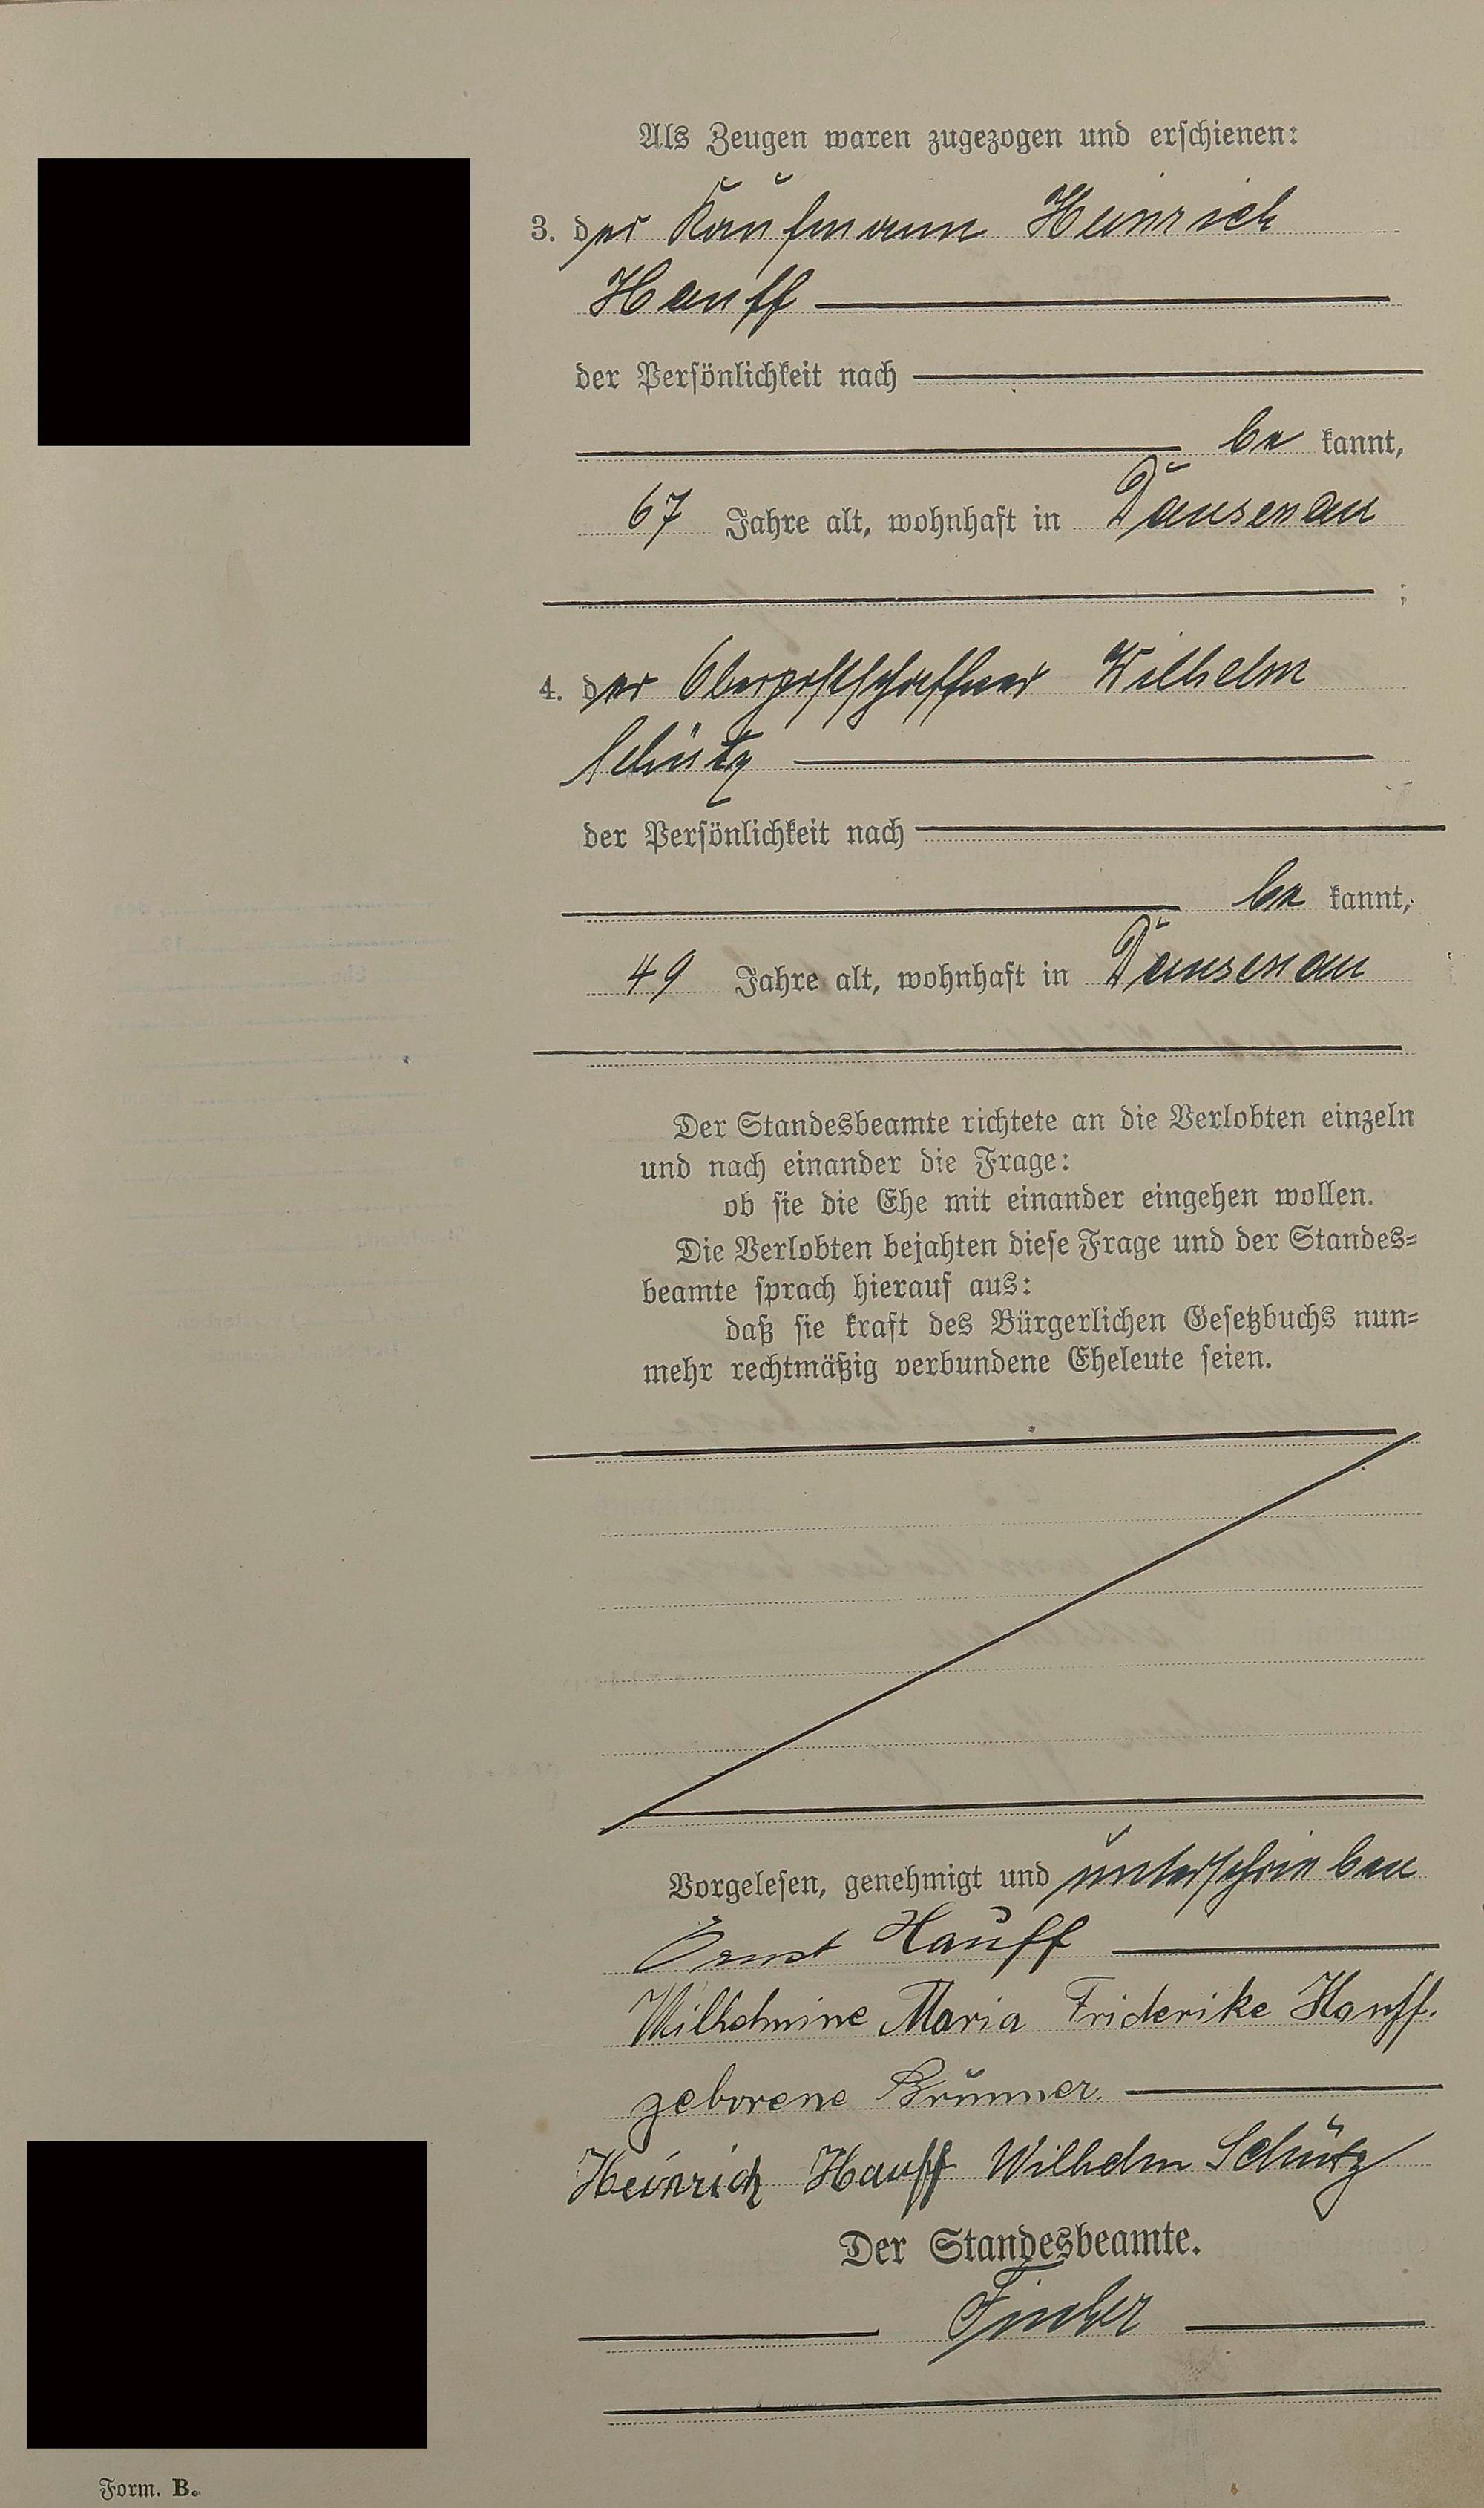 Als Zeugen waren zugezogen und erschienen:
3. der Kaufmann Heinrich
Hauff
der Persönlichkeit nach
be kannt,
67 Jahre alt, wohnhaft in Dausenau
;
4. der Oberpostschaffner Wilhelm
Schütz
der Persönlichkeit nach
be kannt,
49 Jahre alt, wohnhaft in Dausenau
Der Standesbeamte richtete an die Verlobten einzeln
und nach einander die Frage:
ob sie die Ehe mit einander eingehen wollen.
Die Verlobten bejahten diese Frage und der Standes=
beamte sprach hierauf aus:
daß sie kraft des Bürgerlichen Gesetzbuchs nun=
mehr rechtmäßig verbundene Eheleute seien.
Vorgelesen, genehmigt und unterschrieben
Ernst Hauff
Wilhelmine Maria Friderike Hauff.
geborene Brummer.
Heinrich Hauff Wilhelm Schütz
Der Standesbeamte.
Form. B.